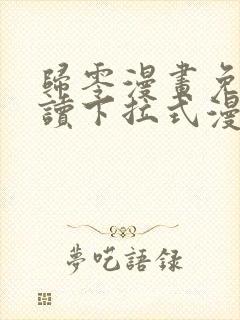 歸零漫畫免
讀下拉式漫
夢呓語録